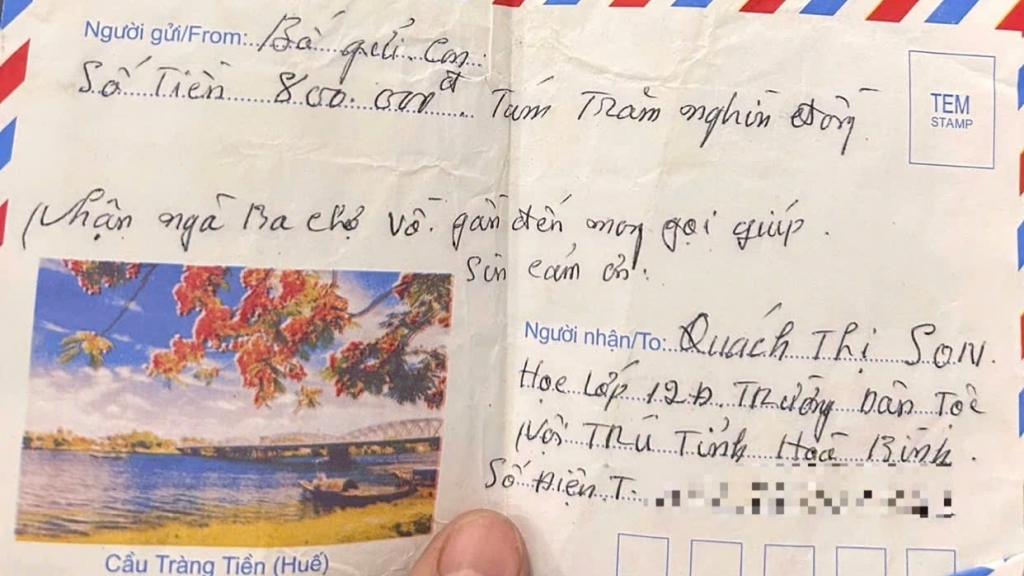 Người gửi/From: Bố gửi con
Số Tiền 800.000đ Tám Trăm nghìn đồng
TEM
STAMP
Nhận ngã Ba chợ Vồ. gần đến mong gọi giúp.
Sin cảm ơn.
Người nhận/To: Quách Thị Sơn.
Học Lớp 12D. Trường Dân Tộc
Nội Trú Tỉnh Hoà Bình.
Số Điện T:
Cầu Tràng Tiền (Huế)